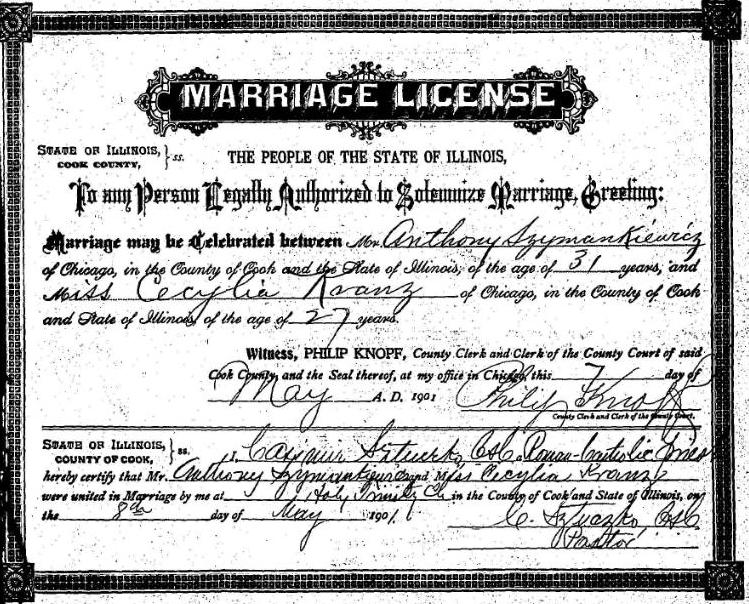 MARRIAGE LICENSE
STATE OF ILLINOIS, } ss.
COOK COUNTY,
THE PEOPLE OF THE STATE OF ILLINOIS,
To any Person Legally Authorized to Solemnize Marriage, Greeting:
Marriage may be Celebrated between Mr. Anthony Szymankiewicz
of Chicago, in the County of Cook and the State of Illinois, of the age of 31 years, and
Miss Cecylia Kranz of Chicago, in the County of Cook
and State of Illinois, of the age of 27 years.
Witness, PHILIP KNOPF, County Clerk and Clerk of the County Court of said
Cook County, and the Seal thereof, at my office in Chicago, this 7 day of
May A. D. 1901 Philip Knopf
County Clerk and Clerk of the County Court.
STATE OF ILLINOIS, } ss.
COUNTY OF COOK,
I, Casimir Sztuczko, CSC, Roman-Catholic Priest
hereby certify that Mr. Anthony Szymankiewicz and Miss Cecylia Kranz
were united in Marriage by me at Holy Trinity Ch in the County of Cook and State of Illinois, on
the 8th day of May 1901.
C. Sztuczko, CSC
Pastor